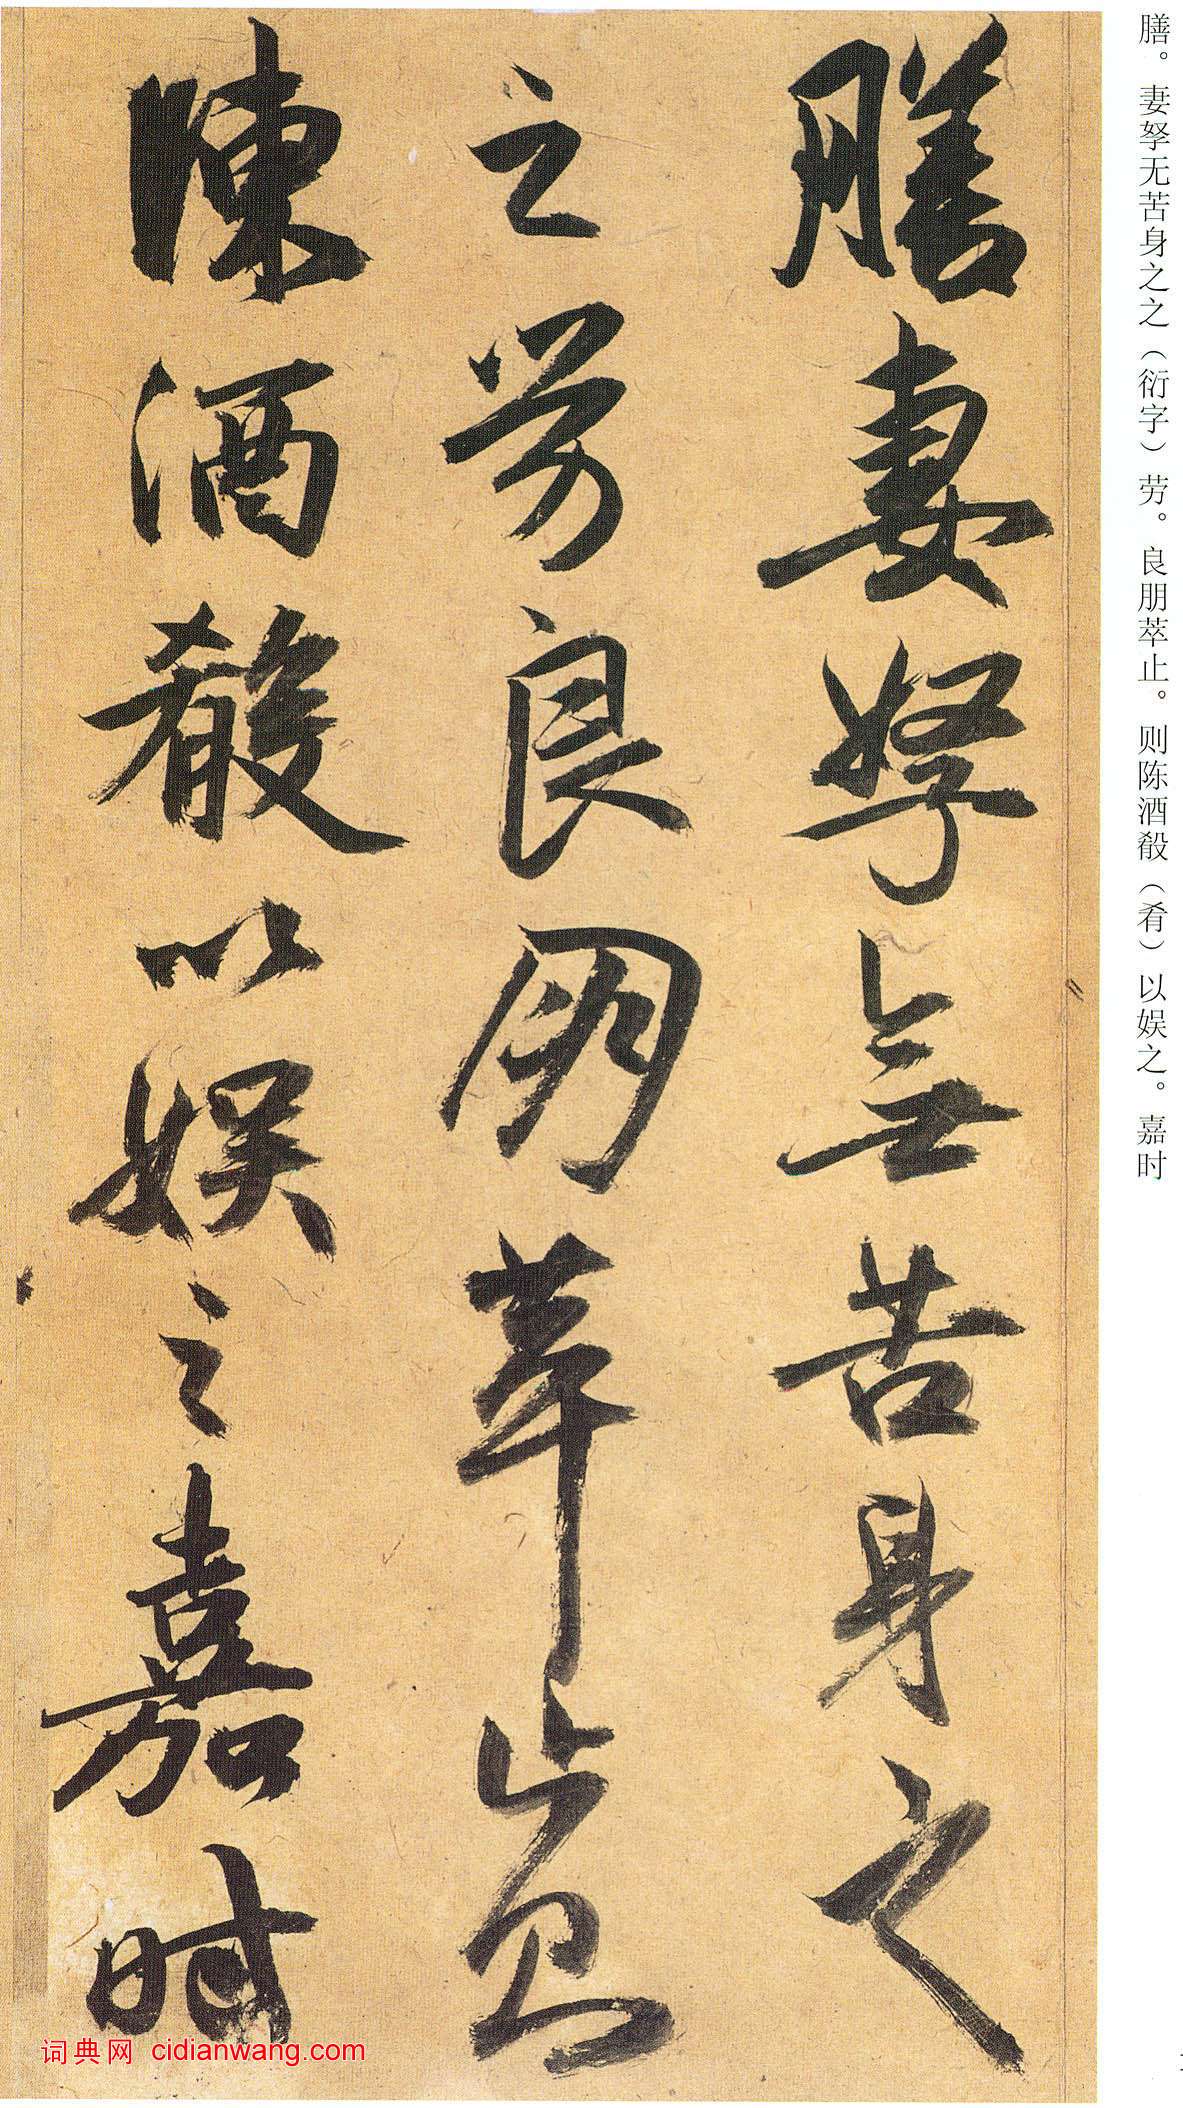 膳。妻孥无苦身之之（衍字）劳。良朋萃止。则陈酒殽（肴）以娱之。嘉时
膳妻孥無苦身之
之劳良朋萃止则
陳酒殽以娱之嘉时
词典网 cidianwang.com